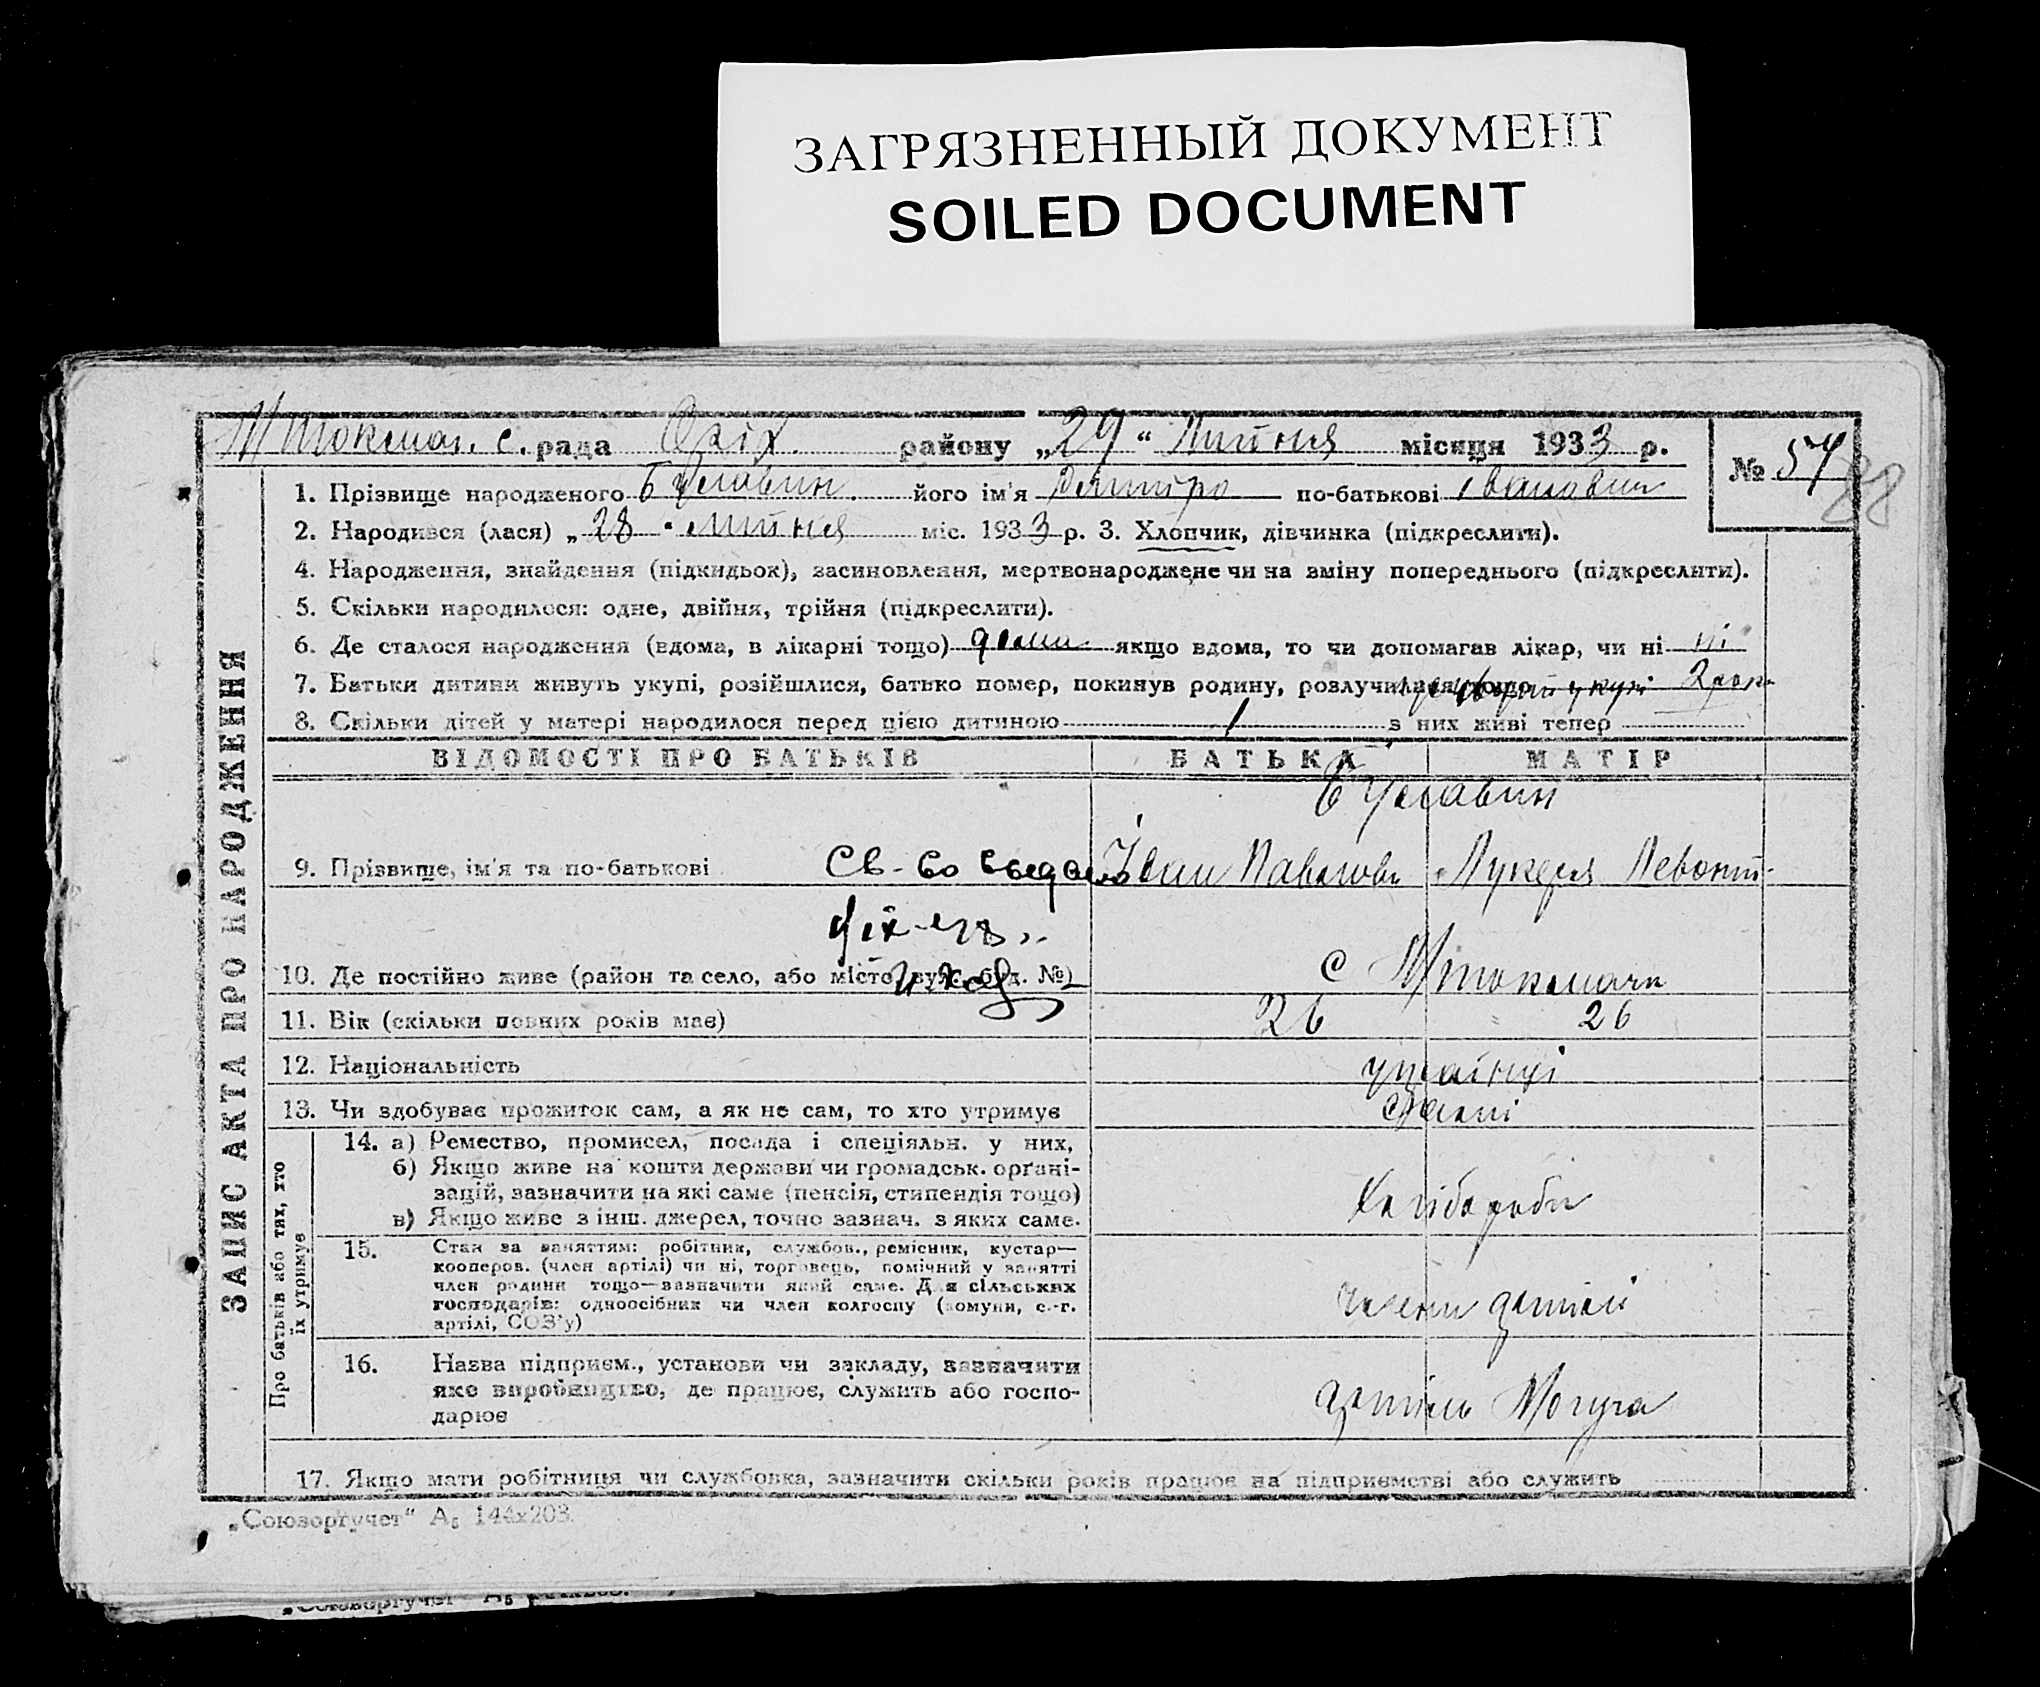 ЗАГРЯЗНЕННЫЙ ДОКУМЕНТ
SOILED DOCUMENT
Мтокмач. с. рада Оріх. району „29“ Липня місяця 1933 р.
№ 57
88
1. Прізвище народженого його ім'я Дмитро по-батькові Іванович
2. Народився (лася) „28“ липня міс. 1933 р. 3. Хлопчик, дівчинка (підкреслити).
4. Народження, знайдення (підкидьок), засиновлення, мертвонароджене чи на зміну попереднього (підкреслити).
5. Скільки народилося: одне, двійня, трійня (підкреслити).
6. Де сталося народження (вдома, в лікарні тощо) дома якщо вдома, то чи допомагав лікар, чи ні ні
7. Батьки дитини живуть укупі, розійшлися, батько помер, покинув родину, розлучилися, тощо укупі
8. Скільки дітей у матері народилося перед цією дитиною 1 з них живі тепер
ВІДОМОСТІ ПРО БАТЬКІВ БАТЬКА МАТІР
9. Прізвище, ім'я та по-батькові Іван Павлов Лукерія Левонт.
10. Де постійно живе (район та село, або місто, вул., буд. №) с Мтокмачи
11. Вік (скільки повних років має) 26 26
12. Національність українці
13. Чи здобуває прожиток сам, а як не сам, то хто утримує самі
14. а) Ремество, промисел, посада і спеціяльн. у них,
б) Якщо живе на кошти держави чи громадськ. орґані-
зацій, зазначити на які саме (пенсія, стипендія тощо)
в) Якщо живе з інш. джерел, точно зазнач. з яких саме.
Хлібороби
15. Стан за заняттям: робітник, службов., ремісник, кустар—
кооперов. (член артілі) чи ні, торговець, помічний у занятті
член родини тощо—зазначити який саме. Для сільських
господарів: одноосібник чи член колгоспу (комуни, с.-г.
артілі, СОЗ'у)
члени артілі
16. Назва підприєм., установи чи закладу, зазначити
яке виробництво, де працює, служить або госпо-
дарює
артіль Могуча
17. Якщо мати робітниця чи службовка, зазначити скільки років працює на підприємстві або служить
ЗАПИС АКТА ПРО НАРОДЖЕННЯ
Про батьків або тих, хто
їх утримує
„Союзоргучет“ А₅ 144х203.